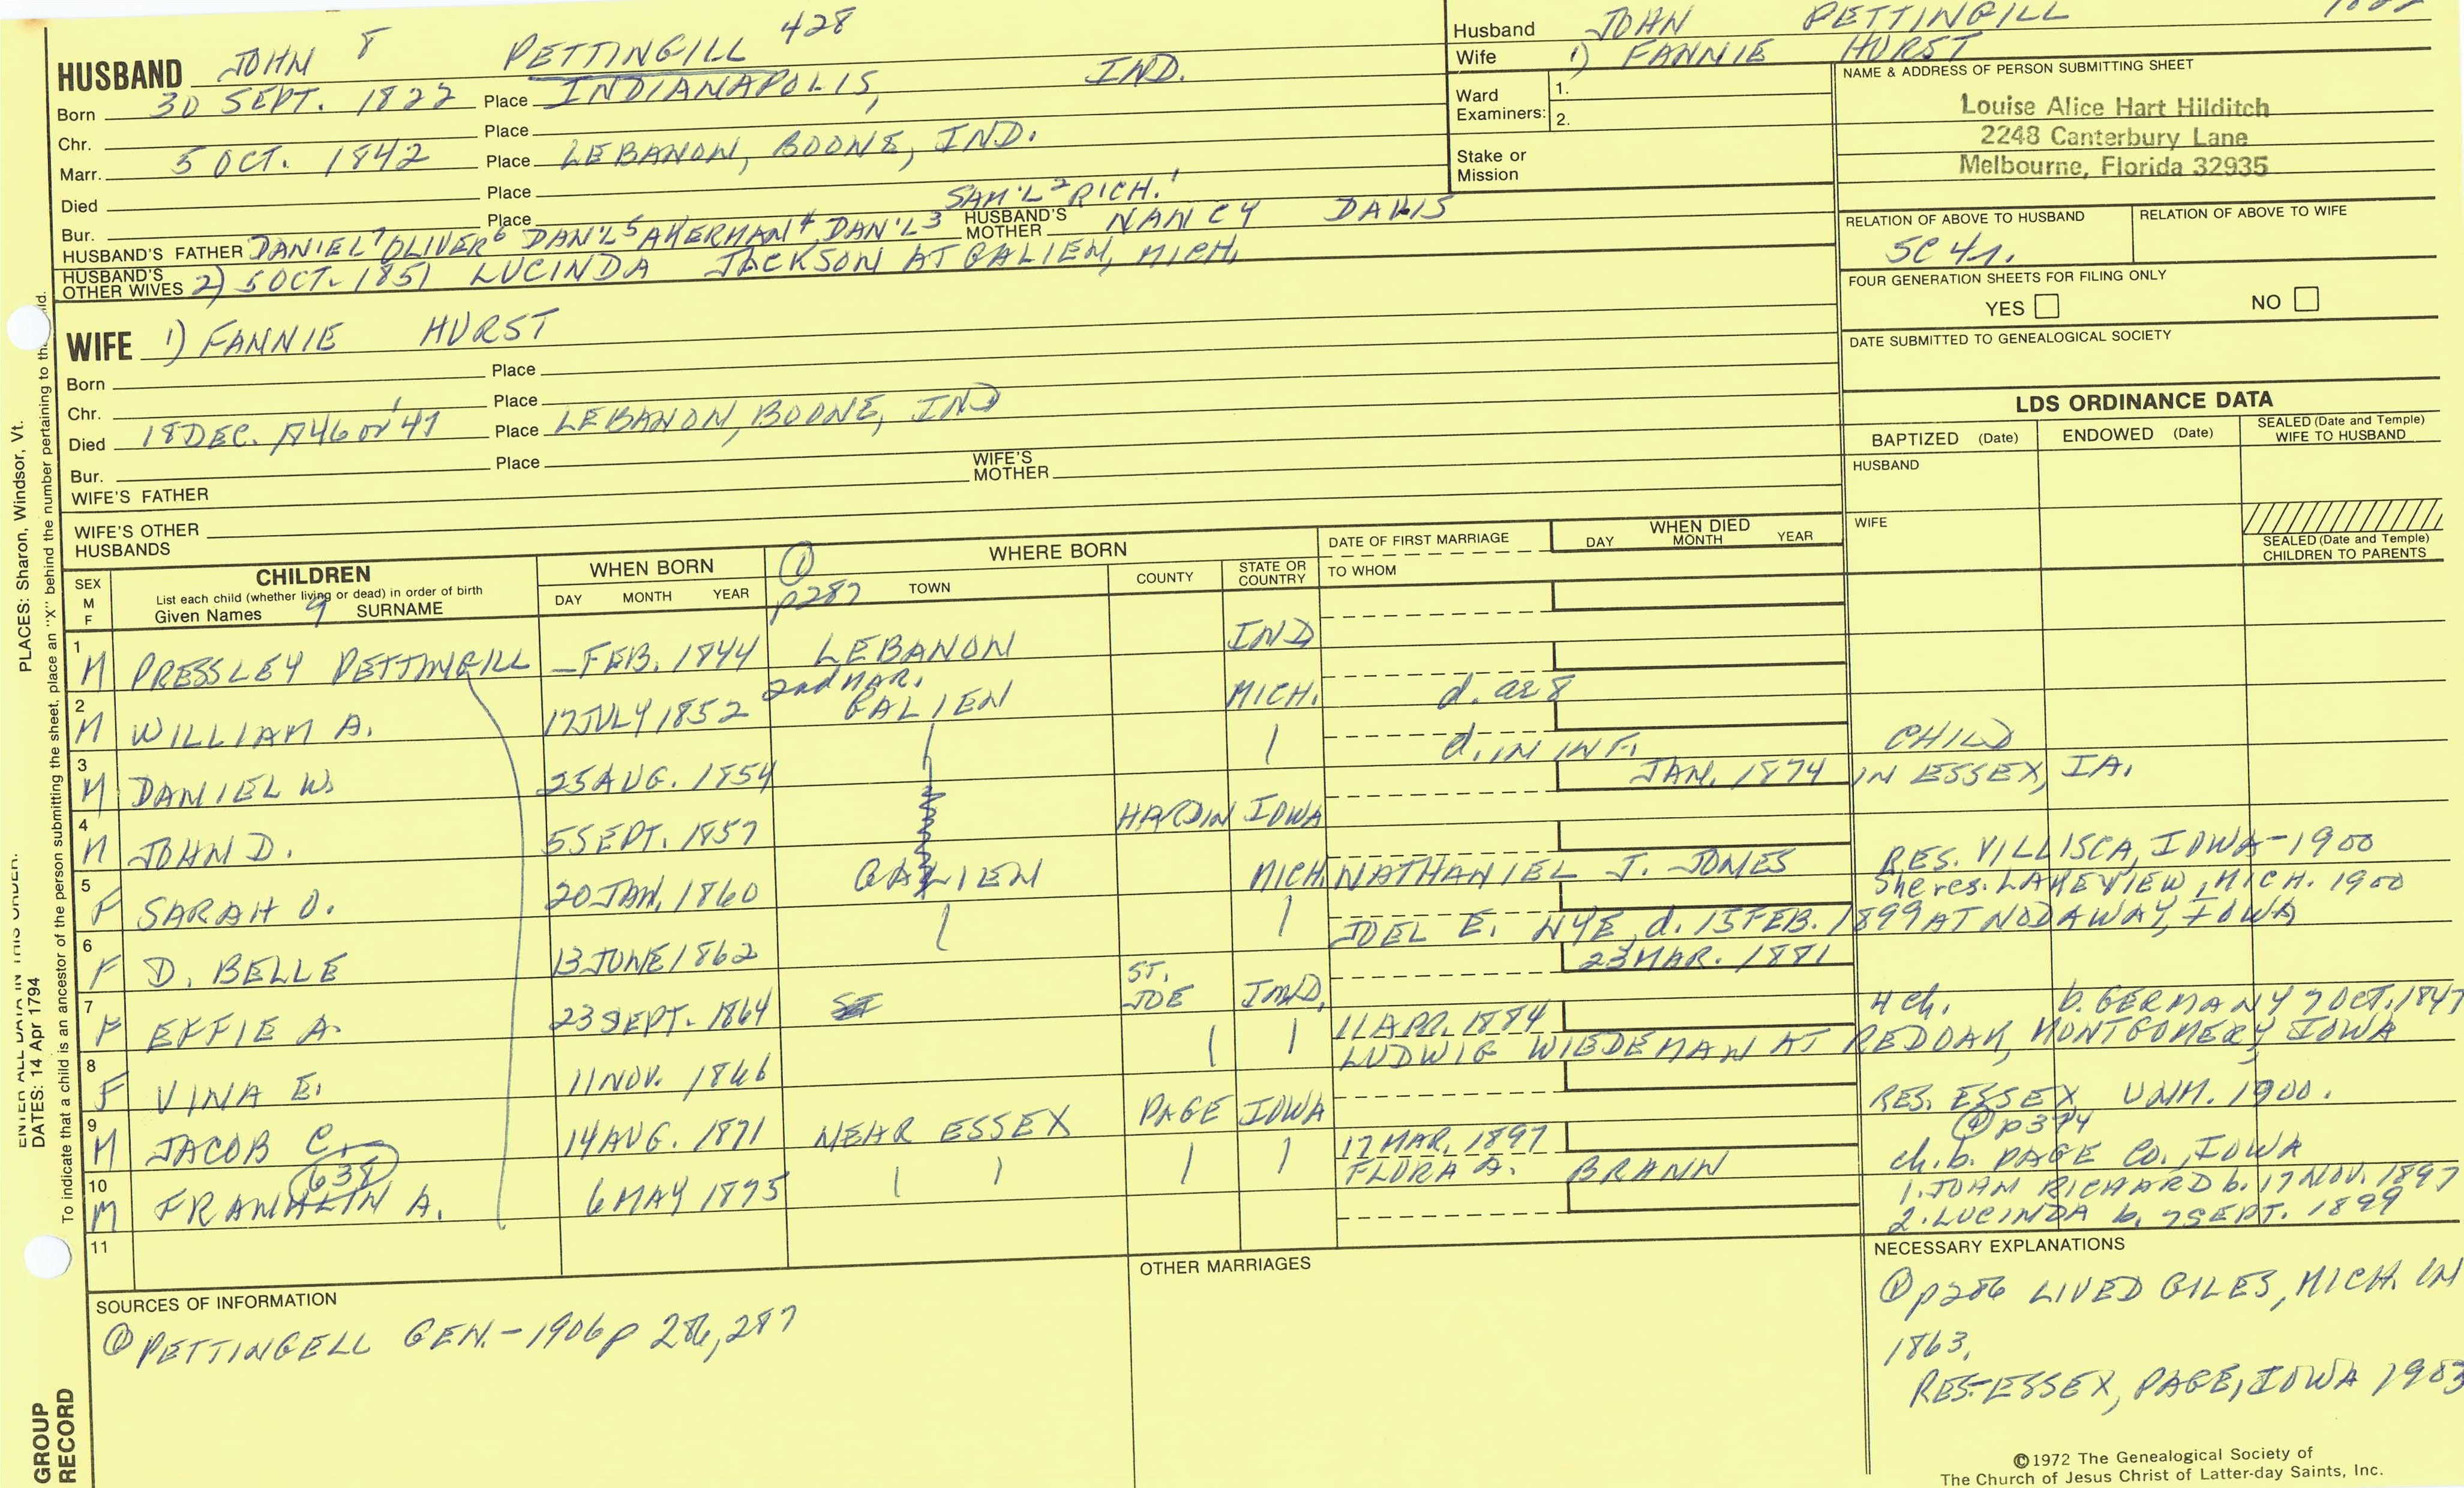 HUSBAND JOHN 8 PETTINGILL 428
Born 30 SEPT. 1822 Place INDIANAPOLIS, IND.
Chr. Place
Marr. 5 OCT. 1842 Place LEBANON, BOONE, IND.
Died Place
Bur. Place
SAM'L 2 RICH. 1
HUSBAND'S FATHER DANIEL 7 OLIVER 6 DAN'L 5 AKERMAN 4 DAN'L 3 HUSBAND'S MOTHER NANCY DAVIS
HUSBAND'S OTHER WIVES 2) 5 OCT. 1851 LUCINDA JACKSON AT GALIEN, MICH.
Husband JOHN PETTINGILL
Wife 1) FANNIE HURST
Ward Examiners: 1.
2.
Stake or Mission
NAME & ADDRESS OF PERSON SUBMITTING SHEET
Louise Alice Hart Hilditch
2248 Canterbury Lane
Melbourne, Florida 32935
RELATION OF ABOVE TO HUSBAND RELATION OF ABOVE TO WIFE
5C 4r.
FOUR GENERATION SHEETS FOR FILING ONLY
YES NO
DATE SUBMITTED TO GENEALOGICAL SOCIETY
WIFE 1) FANNIE HURST
Born Place
Chr. Place
Died 18 DEC. 1846 or '47 Place LEBANON, BOONE, IND
Bur. Place
WIFE'S FATHER WIFE'S MOTHER
WIFE'S OTHER HUSBANDS
LDS ORDINANCE DATA
BAPTIZED (Date) ENDOWED (Date) SEALED (Date and Temple) WIFE TO HUSBAND
HUSBAND
WIFE
SEALED (Date and Temple) CHILDREN TO PARENTS
SEX M F CHILDREN WHEN BORN ① WHERE BORN DATE OF FIRST MARRIAGE WHEN DIED
List each child (whether living or dead) in order of birth DAY MONTH YEAR p287 TOWN COUNTY STATE OR COUNTRY TO WHOM DAY MONTH YEAR
Given Names 9 SURNAME
1 M PRESSLEY PETTINGILL — FEB. 1844 LEBANON IND
2nd MAR.
2 M WILLIAM A. 17 JULY 1852 GALIEN MICH. d. ae 8
3 M DANIEL W. 25 AUG. 1854 d. IN INF. CHILD
JAN. 1874 IN ESSEX, IA.
4 M JOHN D. 5 SEPT. 1857 HARDIN IOWA
RES. VILLISCA, IOWA-1900
5 F SARAH O. 20 JAN. 1860 GALIEN MICH. NATHANIEL J. JONES She res. LAKEVIEW, MICH. 1900
6 F D. BELLE 13 JUNE 1862 JOEL E. NYE, d. 15 FEB. 1899 AT NODAWAY, IOWA
23 MAR. 1881
7 F EFFIE A. 23 SEPT. 1864 ST. JOE IND.
11 APR. 1884 4 ch. b. GERMANY 7 OCT. 1847
8 F VINA E. 11 NOV. 1866 LUDWIG WIEDEMAN AT RED OAK, MONTGOMERY, IOWA
9 M JACOB C. 14 AUG. 1871 NEAR ESSEX PAGE IOWA RES. ESSEX UNM. 1900.
638 17 MAR. 1897 ① p374
10 M FRANKLIN A. 6 MAY 1875 FLORA A. BRANN ch. b. PAGE CO., IOWA
1. JOHN RICHARD b. 17 NOV. 1897
2. LUCINDA b. 7 SEPT. 1899
11
SOURCES OF INFORMATION
① PETTINGELL GEN.-1906 p 286, 287
OTHER MARRIAGES
NECESSARY EXPLANATIONS
① p286 LIVED GILES, MICH. IN
1863.
RES-ESSEX, PAGE, IOWA 1903
©1972 The Genealogical Society of
The Church of Jesus Christ of Latter-day Saints, Inc.
PLACES: Sharon, Windsor, Vt.
DATES: 14 Apr 1794
To indicate that a child is an ancestor of the person submitting the sheet, place an "X" behind the number pertaining to
GROUP
RECORD